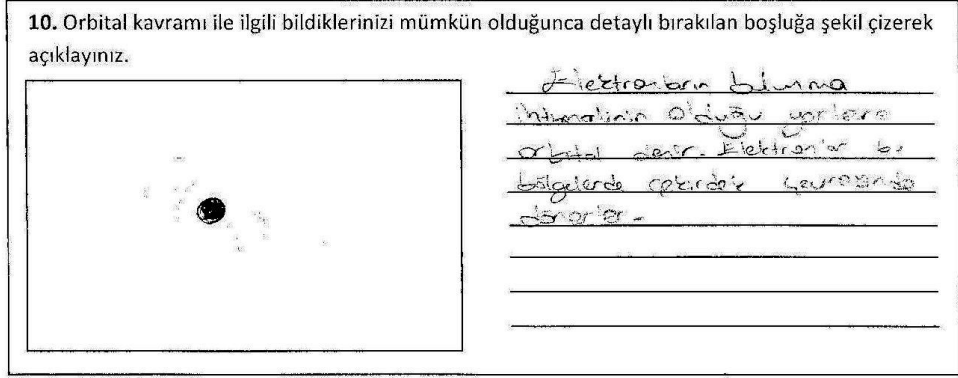 10. Orbital kavramı ile ilgili bildiklerinizi mümkün olduğunca detaylı bırakılan boşluğa şekil çizerek
açıklayınız.
Elektronların bulunma
ihtimalinin olduğu yerlere
orbital denir. Elektronlar bu
bölgelerde çekirdek çevresinde
dönerler.